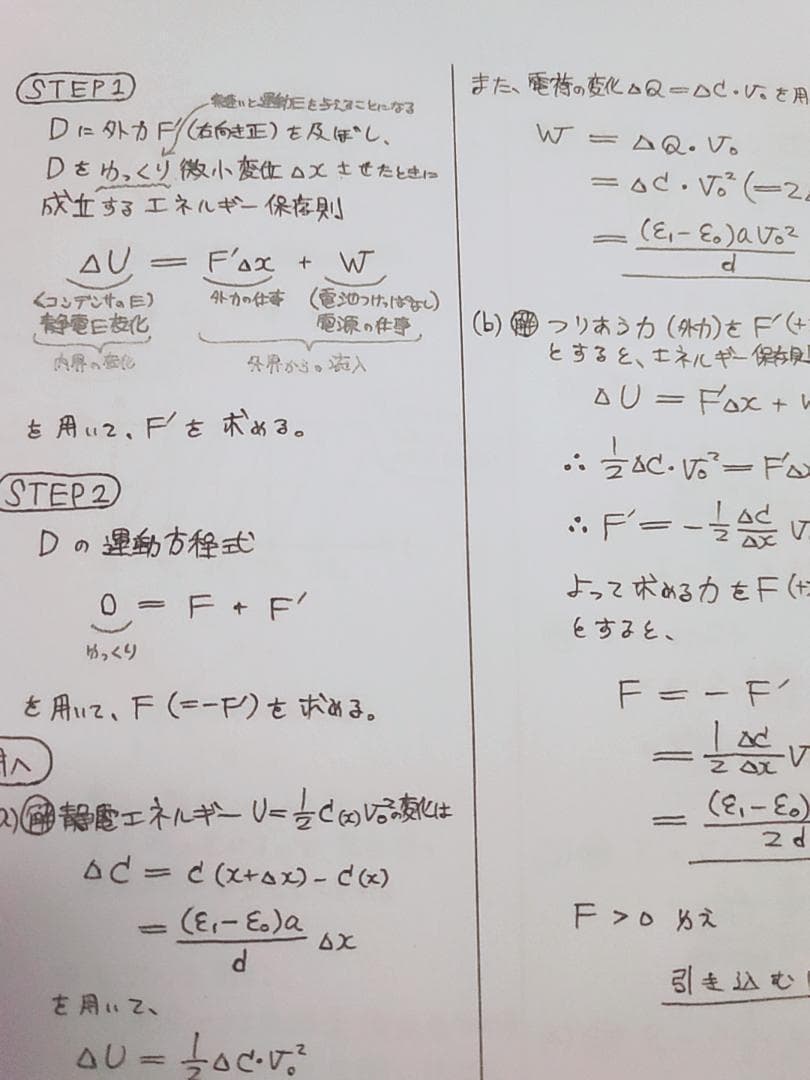 STEP1
速いと運動Eを与えることになる
Dに外力F′(右向き正)を及ぼし、
Dをゆっくり微小変位Δxさせたときに
成立するエネルギー保存則
ΔU = F′Δx + W
(コンデンサのE) 静電E変化
外力の仕事
(電池つけっぱなし) 電源の仕事
内界の変化
外界からの流入
を用いて、F′を求める。
STEP2
Dの運動方程式
0 = F + F′
ゆっくり
を用いて、F(=-F′)を求める。
(解) 静電エネルギーU=1/2 C(x)V₀²の変化は
ΔC = C(x+Δx)-C(x)
= (ε₁-ε₀)a/d Δx
を用いて、
ΔU = 1/2 ΔC・V₀²
また、電荷の変化ΔQ=ΔC・V₀を用
W = ΔQ・V₀
= ΔC・V₀²(=2Δ
= (ε₁-ε₀)aV₀²/d
(b) (解) つりあう力(外力)をF′(+
とすると、エネルギー保存則
ΔU = F′Δx + W
∴ 1/2 ΔC・V₀² = F′Δx
∴ F′ = -1/2 ΔC/Δx V
よって求める力をF(+
とすると、
F = -F′
= 1/2 ΔC/Δx V
= (ε₁-ε₀)/2d
F>0 ゆえ
引き込む